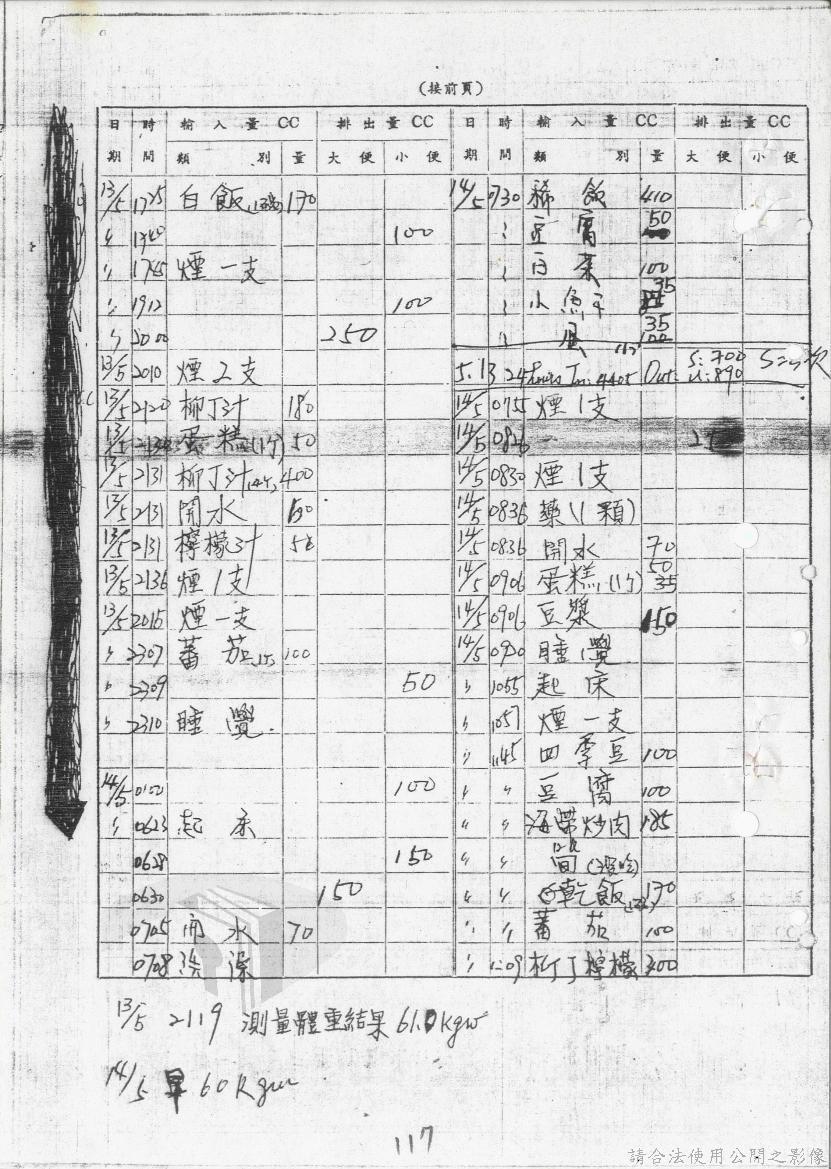 (接前頁)
日期 時間 輸入量CC 類別 量 排出量CC 大便 小便
13/5 1725 白飯 170
〃 100
〃 1745 煙一支
〃 1912 100
〃 2000 250
13/5 2010 煙2支
13/5 2120 柳丁汁 180
13/5 蛋糕(1个) 50
13/5 2131 柳丁汁 400
13/5 2131 開水
13/5 2131 檸檬汁
13/5 2136 煙1支
13/5 2015 煙一支
〃 2307 蕃茄 100
〃 2309 50
〃 2310 睡覺.
14/5 0100 100
〃 0623 起床
0628 150
0630 150
0705 開水 70
0708 洗澡
日期 時間 輸入量CC 類別 量 排出量CC 大便 小便
14/5 0730 稀飯 410
〃 豆腐 50
〃 白菜 100
〃 小魚干 35
〃 蛋 35
5.13 24hours In:4405 Out: S:700 u:890
14/5 0755 煙1支
14/5
14/5 0830 煙1支
14/5 0836 藥(1顆)
14/5 0836 開水 70
14/5 0906 蛋糕(1个) 50 35
14/5 0906 豆漿 150
14/5 0920 睡覺
〃 1055 起床
〃 1057 煙一支
〃 1145 四季豆 100
〃 〃 豆腐 100
〃 〃 海帶炒肉 185
〃 〃
〃 〃 乾飯 170
〃 〃 蕃茄 100
〃 1209 柳丁檸檬 300
13/5 2119 測量體重結果 61.0kgw
14/5 早 60kgw
117
請合法使用公開之影像